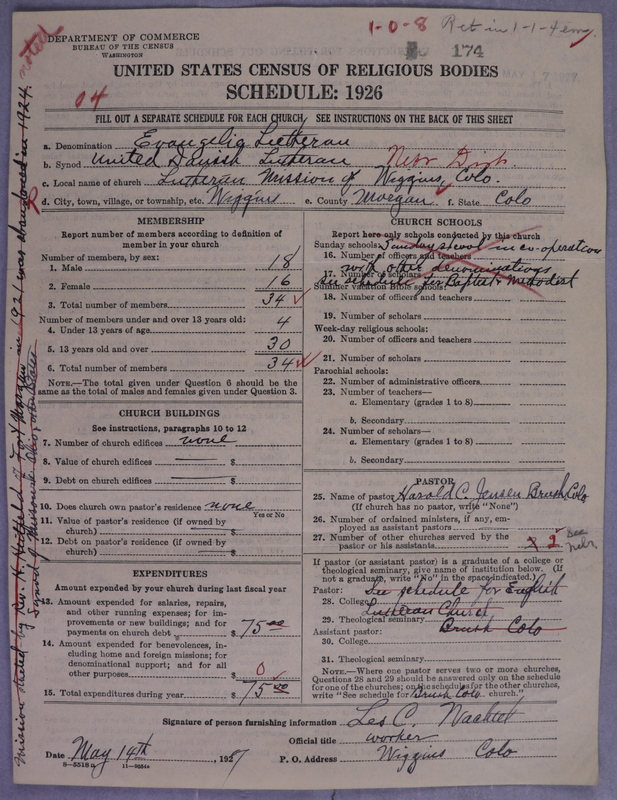 1-0-8 Ret in 1-1-4 em.
DEPARTMENT OF COMMERCE
BUREAU OF THE CENSUS
WASHINGTON
174
UNITED STATES CENSUS OF RELIGIOUS BODIES
SCHEDULE: 1926
04
FILL OUT A SEPARATE SCHEDULE FOR EACH CHURCH SEE INSTRUCTIONS ON THE BACK OF THIS SHEET
a. Denomination Evangelig Lutheran
b. Synod United Danish Lutheran Nebr Dist.
c. Local name of church Lutheran Mission of Wiggins, Colo.
d. City, town, village, or township, etc. Wiggins e. County Morgan f. State Colo
MEMBERSHIP
Report number of members according to definition of
member in your church
Number of members, by sex:
1. Male 18
2. Female 16
3. Total number of members 34
Number of members under and over 13 years old:
4. Under 13 years of age 4
5. 13 years old and over 30
6. Total number of members 34
NOTE.—The total given under Question 6 should be the
same as the total of males and females given under Question 3.
CHURCH BUILDINGS
See instructions, paragraphs 10 to 12
7. Number of church edifices none
8. Value of church edifices $
9. Debt on church edifices $
10. Does church own pastor's residence none
Yes or No
11. Value of pastor's residence (if owned by
church) $
12. Debt on pastor's residence (if owned by
church) $
EXPENDITURES
Amount expended by your church during last fiscal year
13. Amount expended for salaries, repairs,
and other running expenses; for im-
provements or new buildings; and for
payments on church debt $ 75 00
14. Amount expended for benevolences, in-
cluding home and foreign missions; for
denominational support; and for all
other purposes 0
15. Total expenditures during year $ 75 00
CHURCH SCHOOLS
Report here only schools conducted by this church
Sunday schools: Sunday school in co-operation
16. Number of officers and teachers
with other denominations
17. Number of scholars
see schedule for Baptist & Methodist
Summer vacation Bible schools:
18. Number of officers and teachers
19. Number of scholars
Week-day religious schools:
20. Number of officers and teachers
21. Number of scholars
Parochial schools:
22. Number of administrative officers
23. Number of teachers—
a. Elementary (grades 1 to 8)
b. Secondary
24. Number of scholars—
a. Elementary (grades 1 to 8)
b. Secondary
PASTOR
25. Name of pastor Harold C. Jensen Brush, Colo
(If church has no pastor, write "None")
26. Number of ordained ministers, if any, em-
ployed as assistant pastors
27. Number of other churches served by the
pastor or his assistants 2
See Nebr.
If pastor (or assistant pastor) is a graduate of a college or
theological seminary, give name of institution below. (If
not a graduate, write "No" in the space indicated.)
Pastor: See schedule for English
28. College Lutheran Church
29. Theological seminary
Brush Colo
Assistant pastor:
30. College
31. Theological seminary
NOTE.—Where one pastor serves two or more churches,
Questions 28 and 29 should be answered only on the schedule
for one of the churches; on the schedules for the other churches,
write "See schedule for Brush Colo church."
Signature of person furnishing information Les C.
Official title worker
Date May 14th, 1927 P. O. Address Wiggins Colo
8-5518 a 11-9254a
noted
Mission started by Rev. H. Hatfield of Fort Morgan in 1921 was abandoned in 1924.
Synod of Missouri